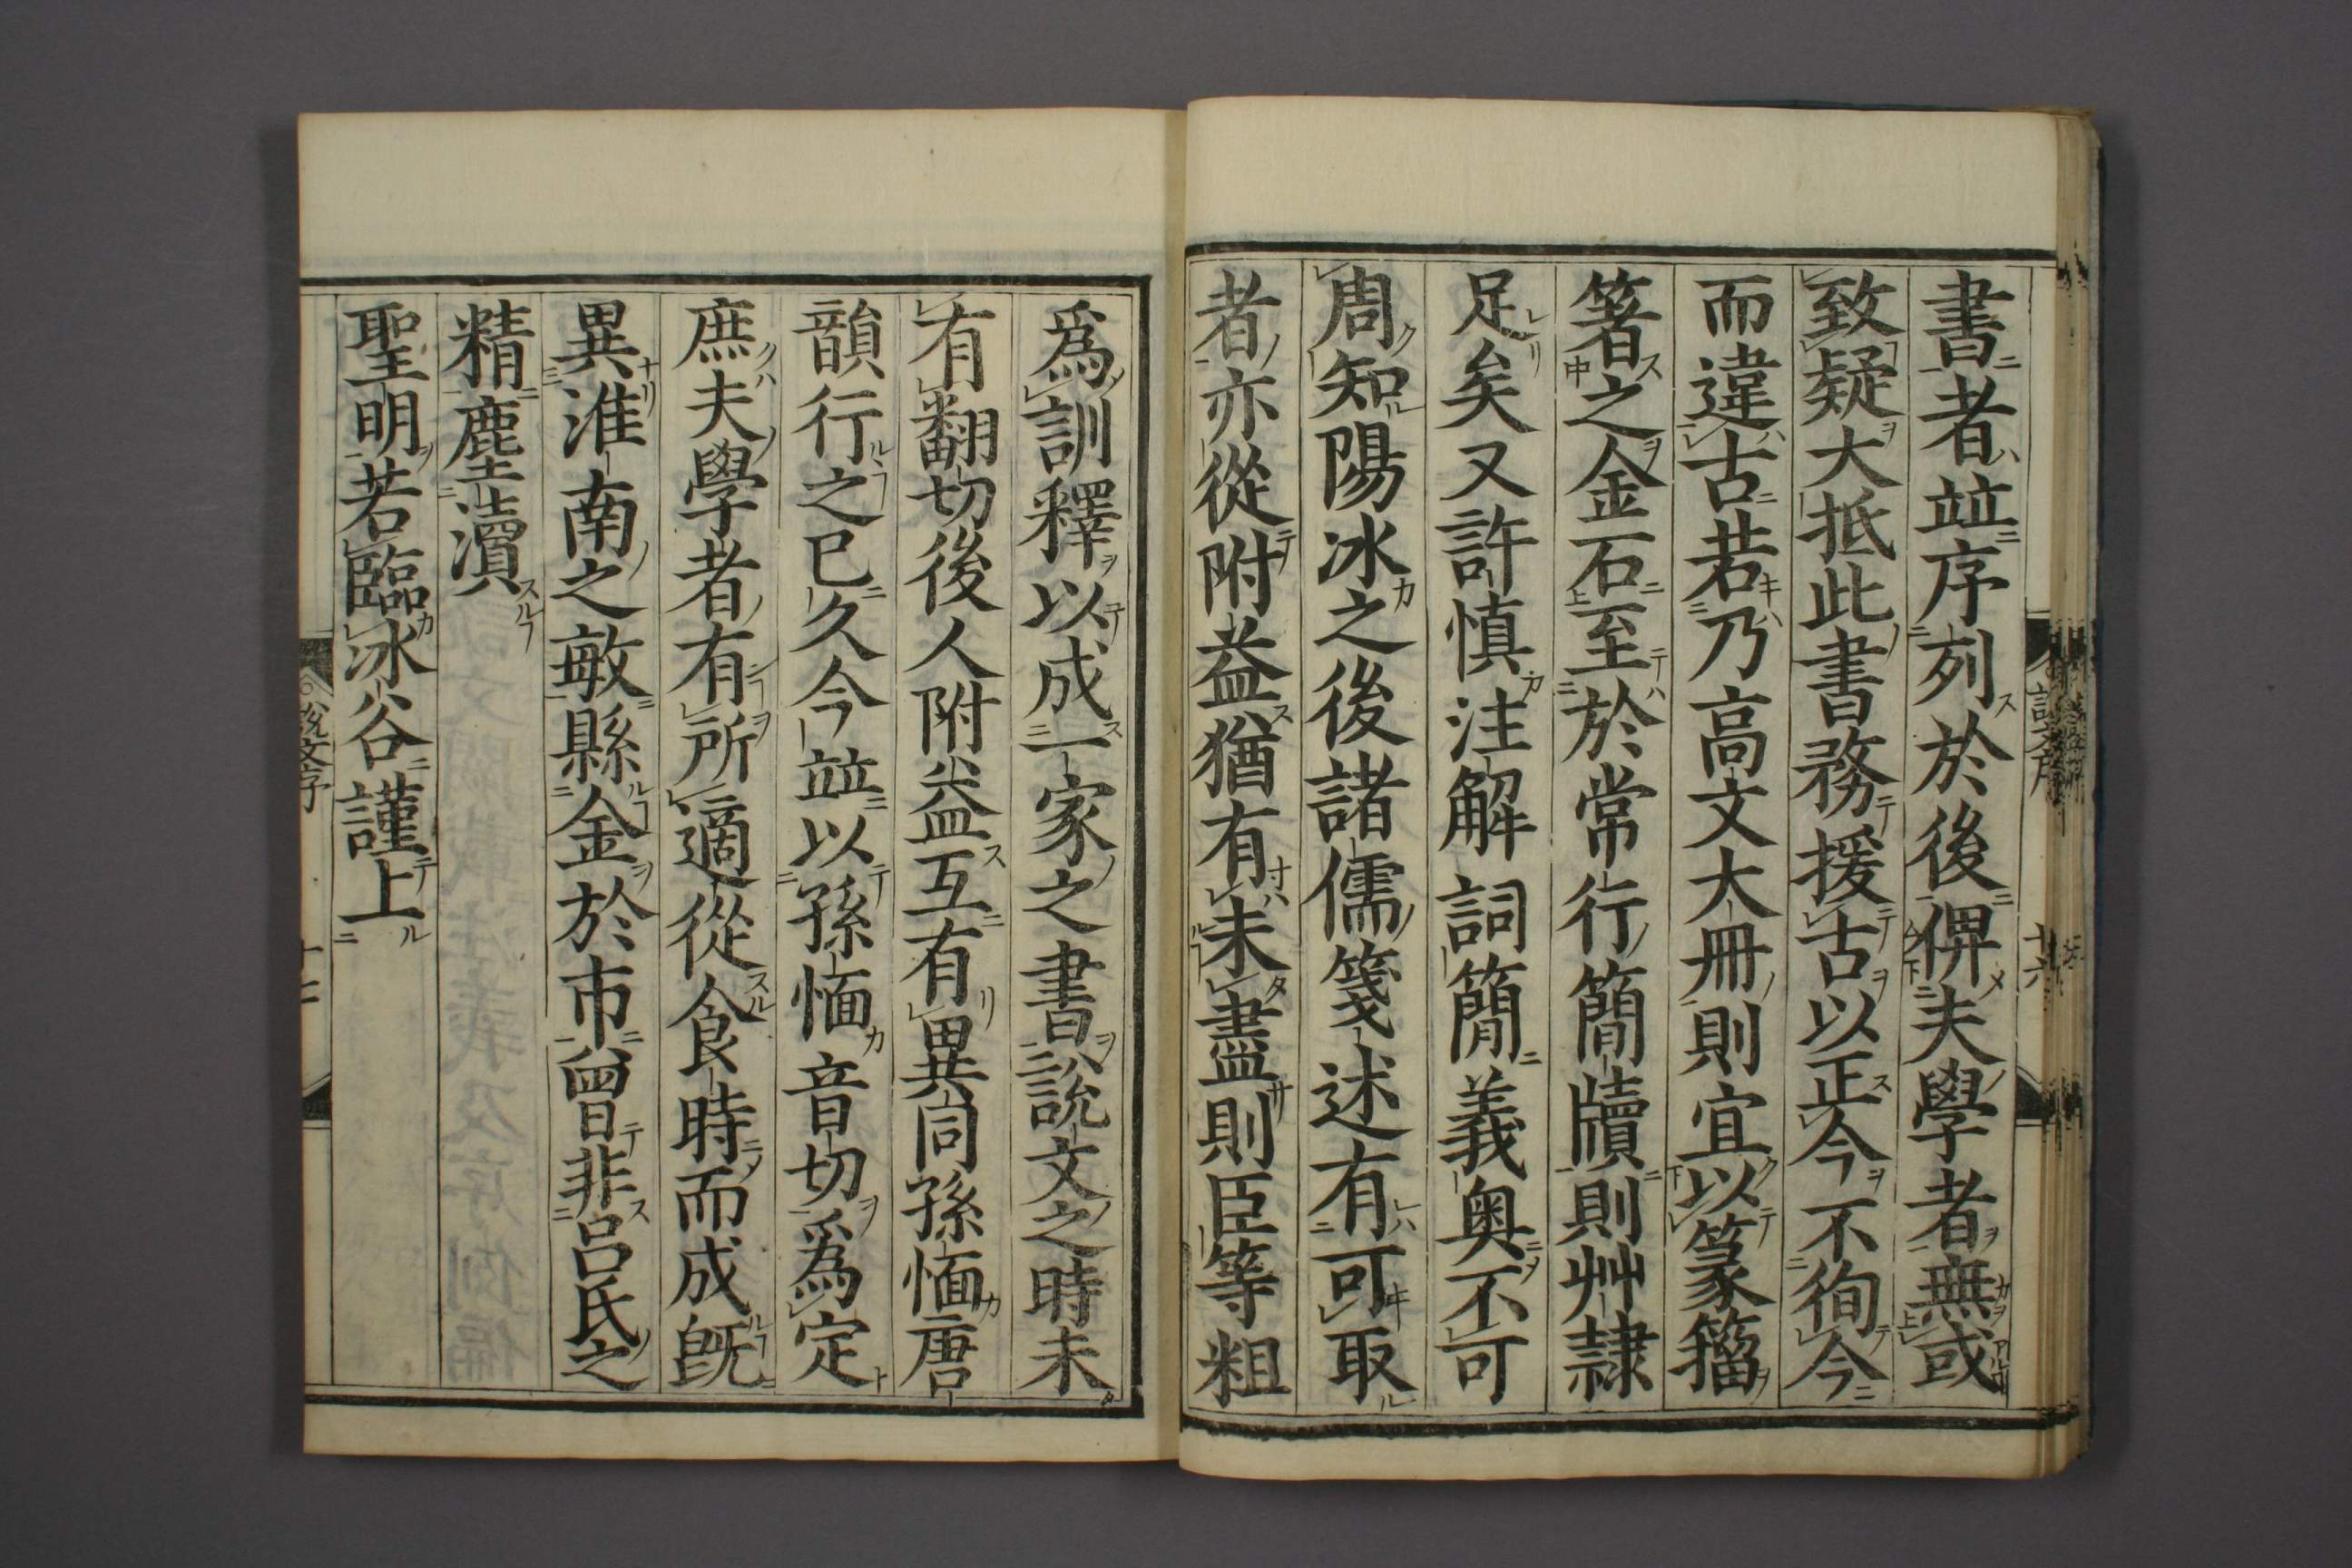 書者竝序列於後俾夫學者無或
致疑大抵此書務援古以正今不徇今
而違古若乃高文大冊則宜以篆籀
箸之金石至於常行簡牘則艸隷
足矣又許慎注解詞簡義奥不可
周知陽冰之後諸儒箋述有可取
者亦從附益猶有未盡則臣等粗
爲訓釋以成一家之書說文之時未
有翻切後人附益互有異同孫愐唐
韻行之已久今竝以孫愐音切爲定
庶夫學者有所適從食時而成旣
異淮南之敏縣金於市曾非呂氏之
精塵瀆
聖明若臨冰谷謹上
說文序
十六
說文序
十七